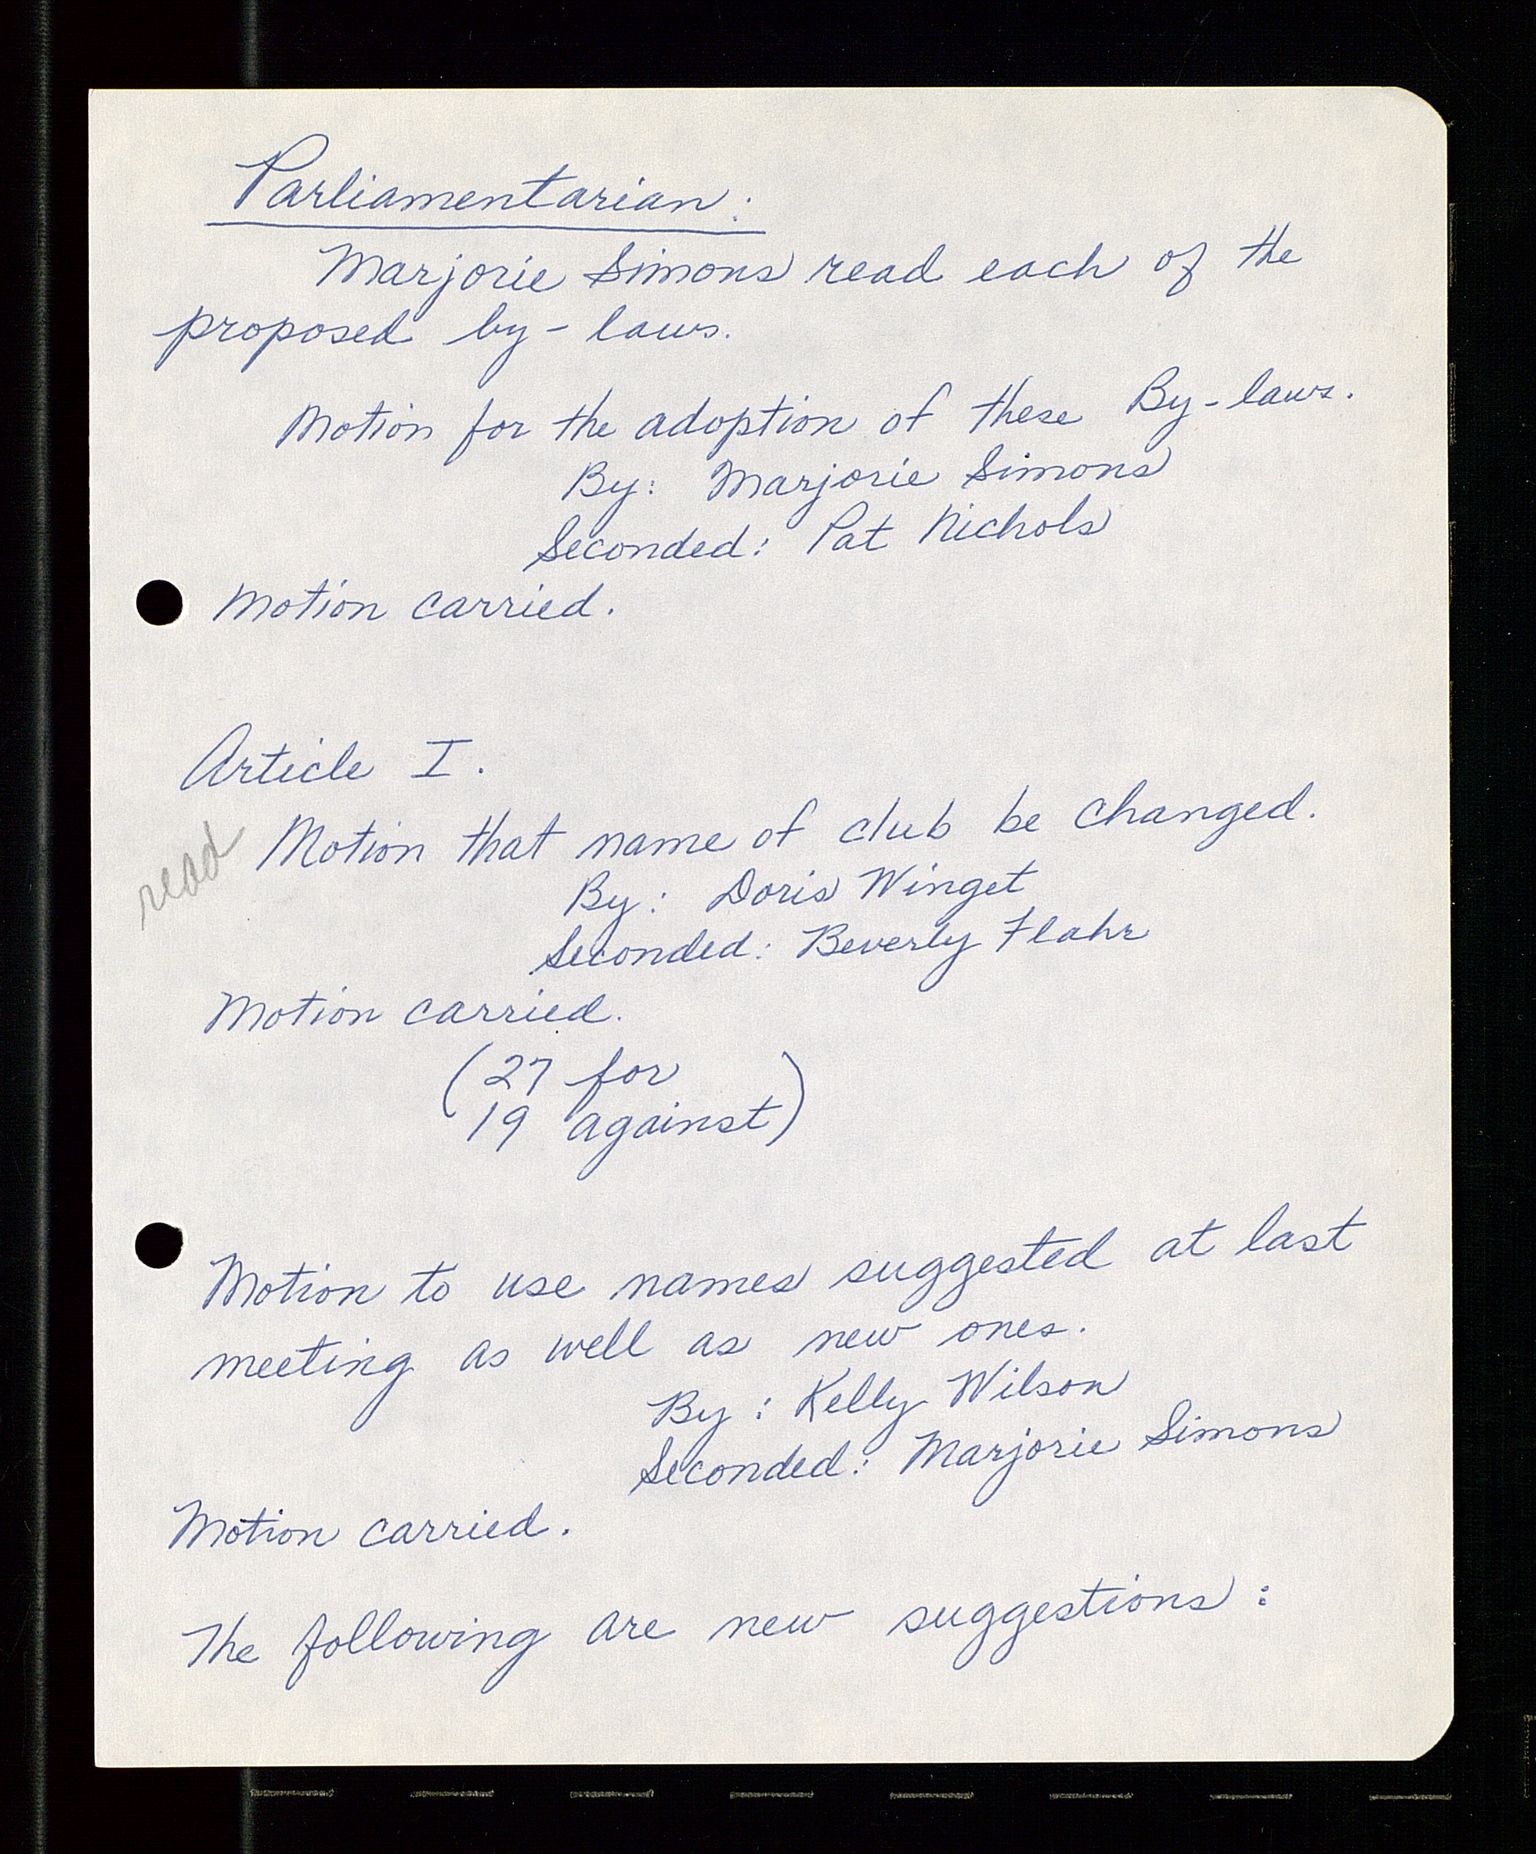 Parliamentarian:
Marjorie Simons read each of the
proposed by-laws.
Motion for the adoption of these By-laws.
By: Marjorie Simons
Seconded: Pat Nichols
Motion carried.
Article I.
read
Motion that name of club be changed.
By: Doris Winget
Seconded: Beverly Flahr
Motion carried.
(27 for
19 against)
Motion to use names suggested at last
meeting as well as new ones.
By: Kelly Wilson
Seconded: Marjorie Simons
Motion carried.
The following are new suggestions: